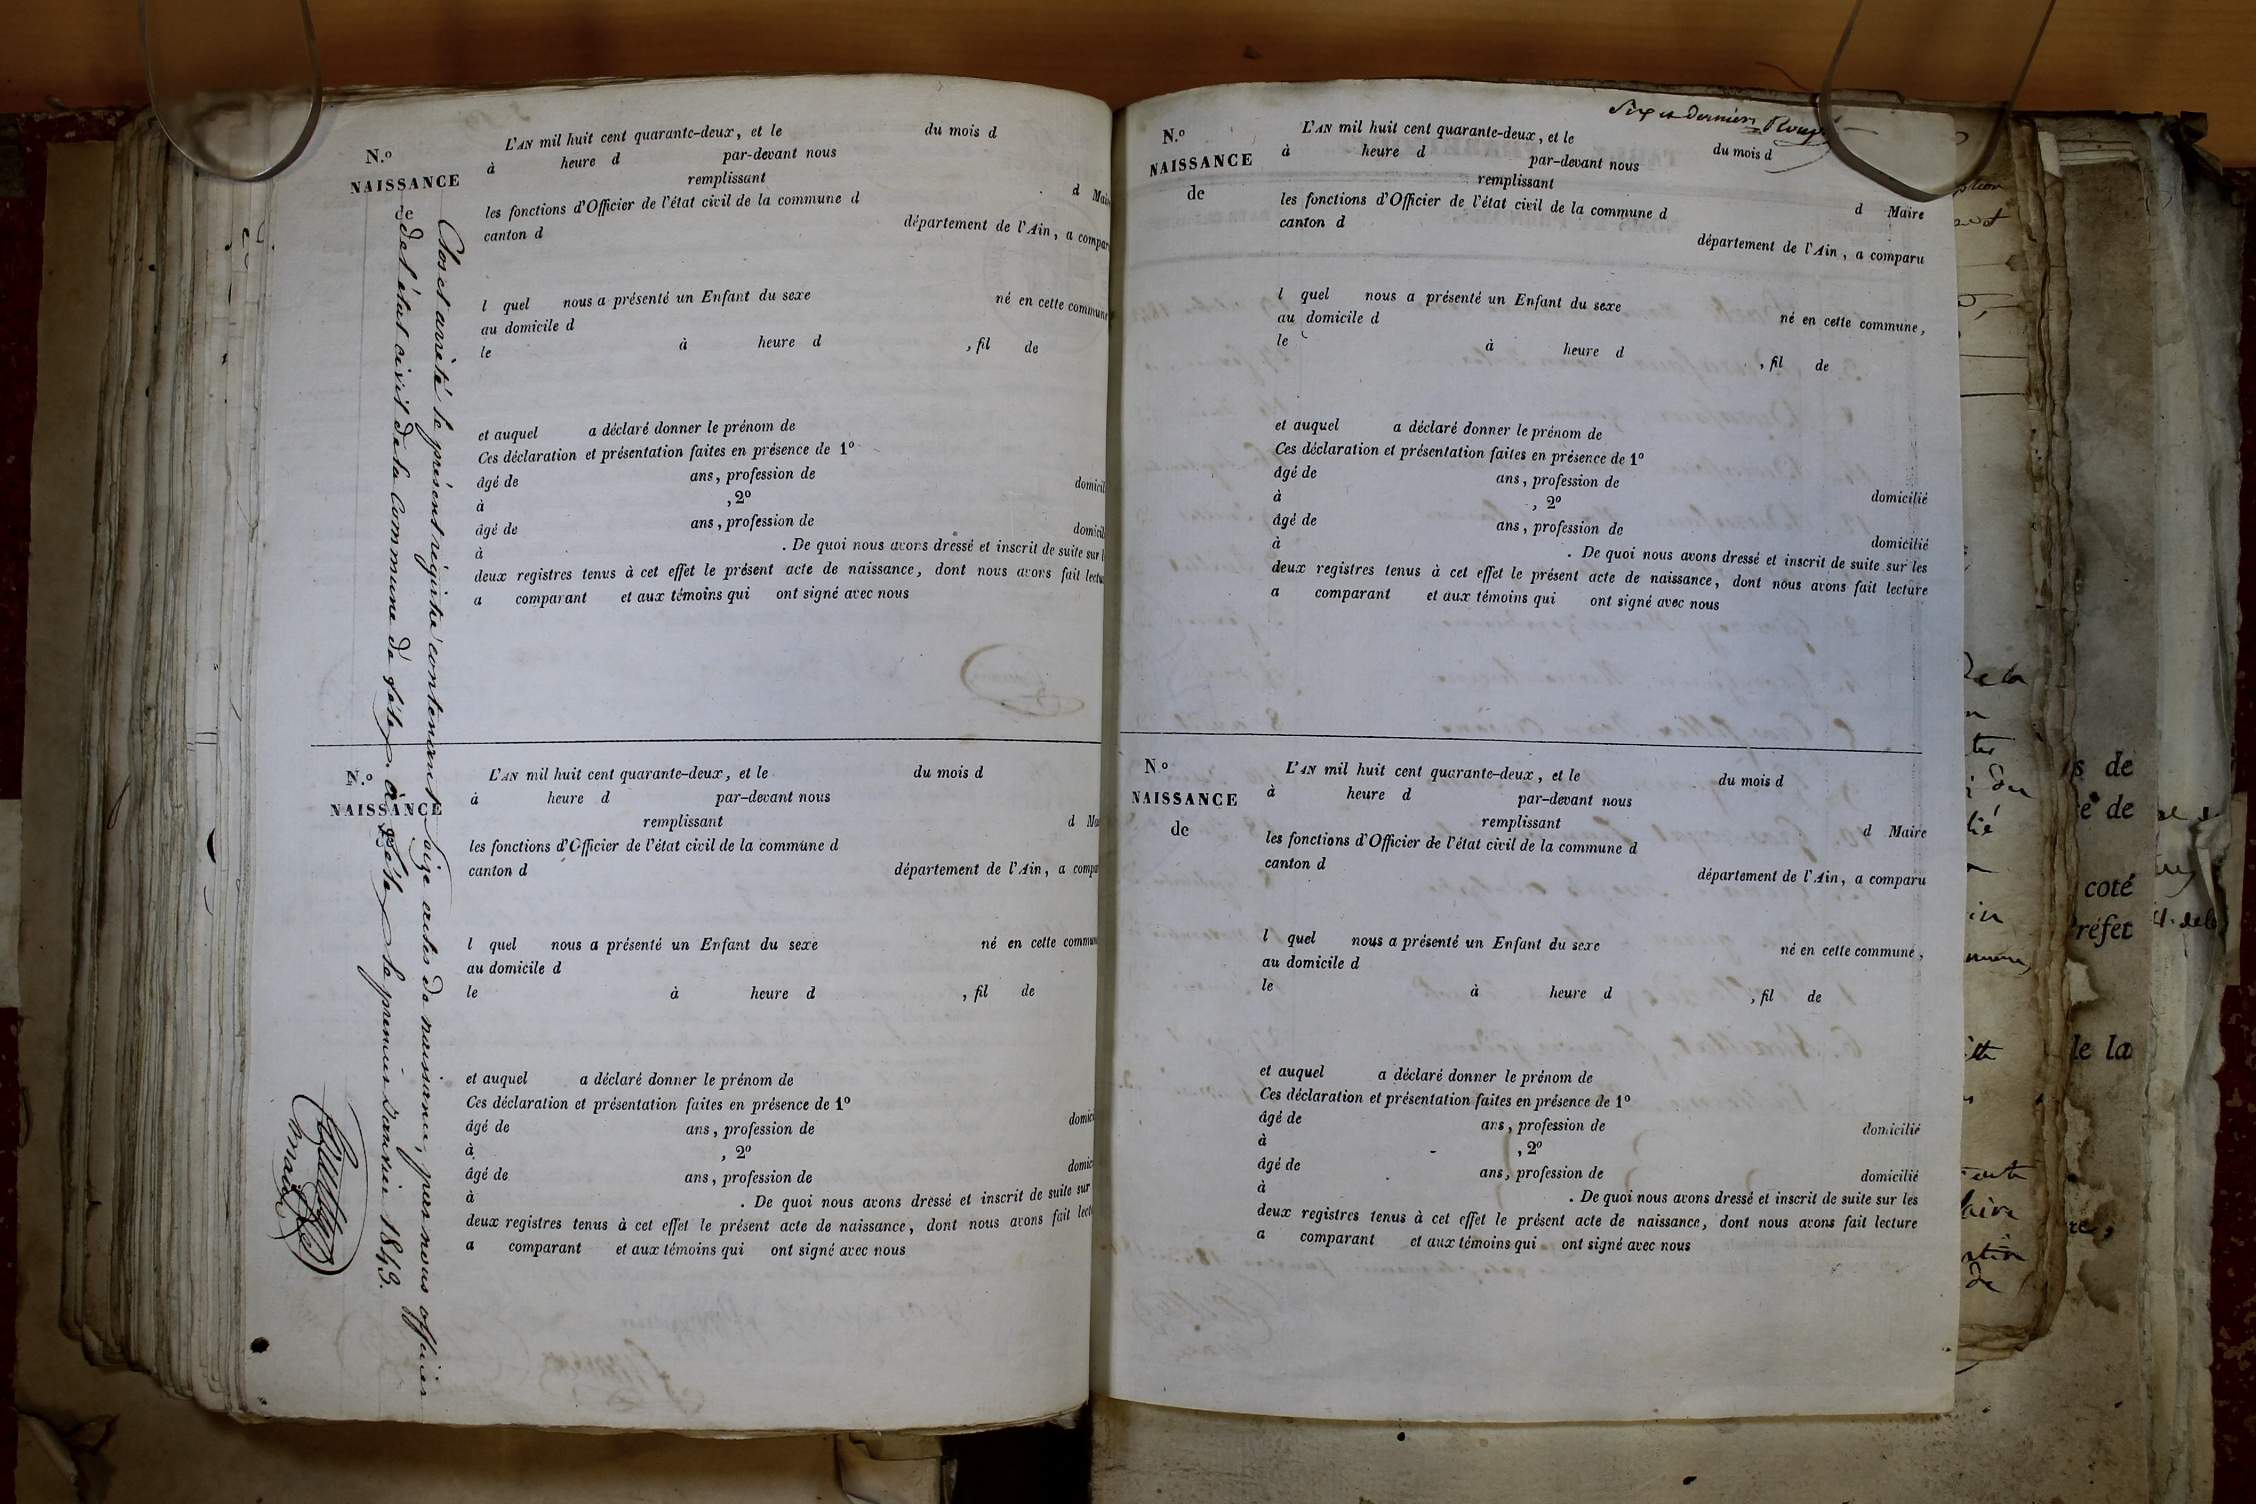 N.º
NAISSANCE
de
L'AN mil huit cent quarante-deux, et le du mois d
à heure d par-devant nous
remplissant d Maire
les fonctions d'Officier de l'état civil de la commune d
canton d département de l'Ain, a comparu
l quel nous a présenté un Enfant du sexe né en cette commune
au domicile d
le à heure d , fil de
et auquel a déclaré donner le prénom de
Ces déclaration et présentation faites en présence de 1º
âgé de ans, profession de domicil
à , 2º
âgé de ans, profession de domicil
à . De quoi nous avons dressé et inscrit de suite sur l
deux registres tenus à cet effet le présent acte de naissance, dont nous avons fait lectu
a comparant et aux témoins qui ont signé avec nous
Clos et arrêté le présent régistre contenant Seize actes de naissance, par nous officier
de l'état civil de la Commune de le premier Janvier 1843.
maire
N.º
NAISSANCE
L'AN mil huit cent quarante-deux, et le du mois d
à heure d par-devant nous
remplissant d Ma
les fonctions d'Officier de l'état civil de la commune d
canton d département de l'Ain, a compa
l quel nous a présenté un Enfant du sexe né en cette commun
au domicile d
le à heure d , fil de
et auquel a déclaré donner le prénom de
Ces déclaration et présentation faites en présence de 1º
âgé de ans, profession de domici
à , 2º
âgé de ans, profession de domic
à . De quoi nous avons dressé et inscrit de suite sur
deux registres tenus à cet effet le présent acte de naissance, dont nous avons fait lect
a comparant et aux témoins qui ont signé avec nous
Six et dernier
N.º
NAISSANCE
de
L'AN mil huit cent quarante-deux, et le du mois d
à heure d par-devant nous
remplissant d Maire
les fonctions d'Officier de l'état civil de la commune d
canton d département de l'Ain, a comparu
l quel nous a présenté un Enfant du sexe né en cette commune,
au domicile d
le à heure d , fil de
et auquel a déclaré donner le prénom de
Ces déclaration et présentation faites en présence de 1º
âgé de ans, profession de domicilié
à , 2º
âgé de ans, profession de domicilié
à . De quoi nous avons dressé et inscrit de suite sur les
deux registres tenus à cet effet le présent acte de naissance, dont nous avons fait lecture
a comparant et aux témoins qui ont signé avec nous
N.º
NAISSANCE
de
L'AN mil huit cent quarante-deux, et le du mois d
à heure d par-devant nous
remplissant d Maire
les fonctions d'Officier de l'état civil de la commune d
canton d département de l'Ain, a comparu
l quel nous a présenté un Enfant du sexe né en cette commune,
au domicile d
le à heure d , fil de
et auquel a déclaré donner le prénom de
Ces déclaration et présentation faites en présence de 1º
âgé de ans, profession de domicilié
à , 2º
âgé de ans, profession de domicilié
à . De quoi nous avons dressé et inscrit de suite sur les
deux registres tenus à cet effet le présent acte de naissance, dont nous avons fait lecture
a comparant et aux témoins qui ont signé avec nous
de
de
coté
réfet
de la